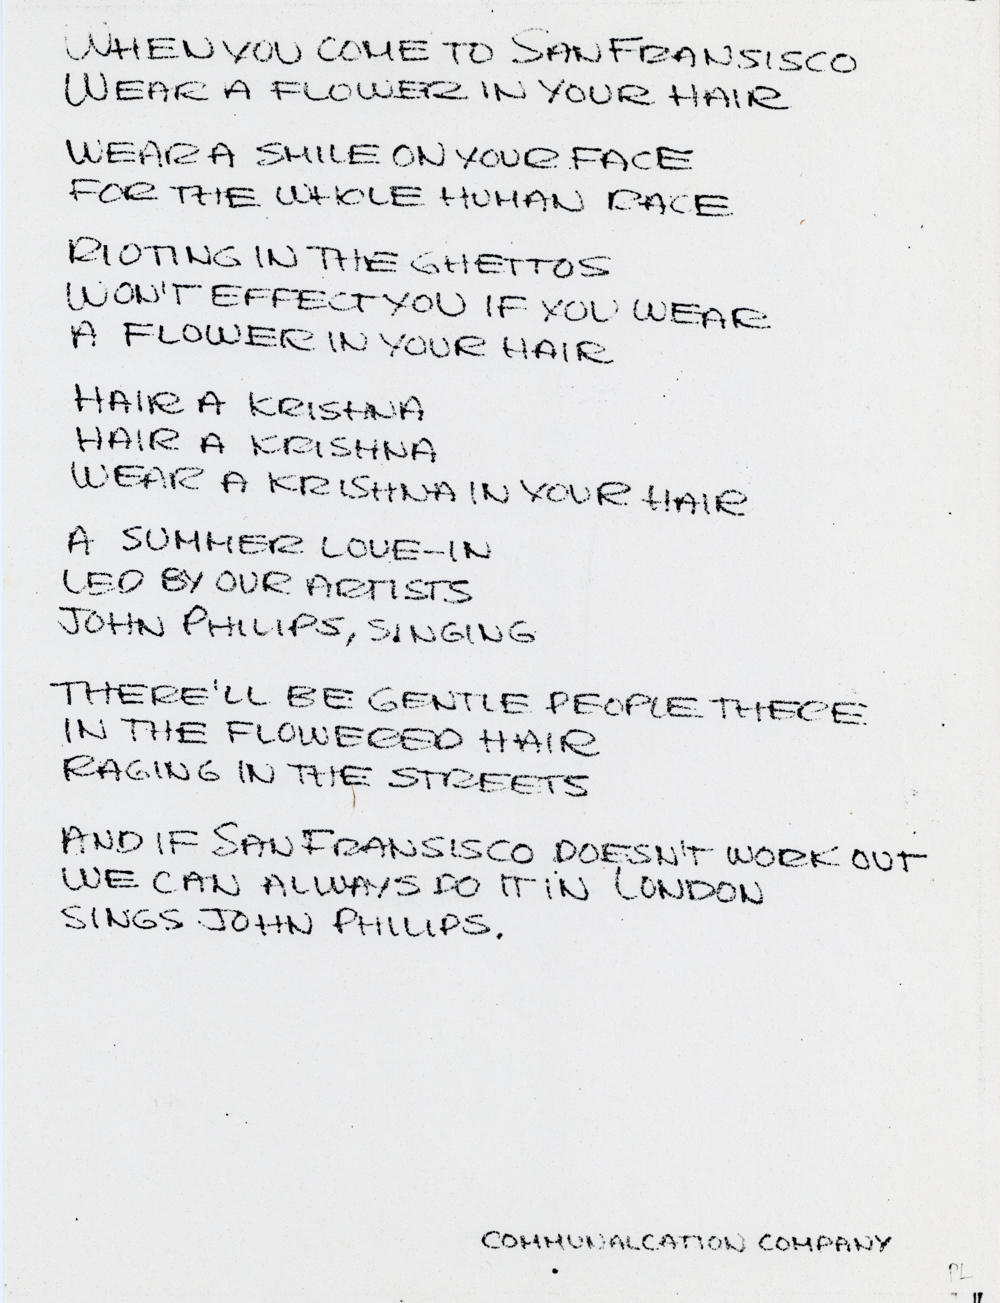 WHEN YOU COME TO SAN FRANSISCO
WEAR A FLOWER IN YOUR HAIR
WEAR A SMILE ON YOUR FACE
FOR THE WHOLE HUMAN RACE
RIOTING IN THE GHETTOS
WON'T EFFECT YOU IF YOU WEAR
A FLOWER IN YOUR HAIR
HAIR A KRISHNA
HAIR A KRISHNA
WEAR A KRISHNA IN YOUR HAIR
A SUMMER LOVE-IN
LED BY OUR ARTISTS
JOHN PHILIPS, SINGING
THERE'LL BE GENTLE PEOPLE THERE
IN THE FLOWERED HAIR
RAGING IN THE STREETS
AND IF SAN FRANSISCO DOESN'T WORK OUT
WE CAN ALWAYS DO IT IN LONDON
SINGS JOHN PHILLIPS.
COMMUNALCATION COMPANY
PL